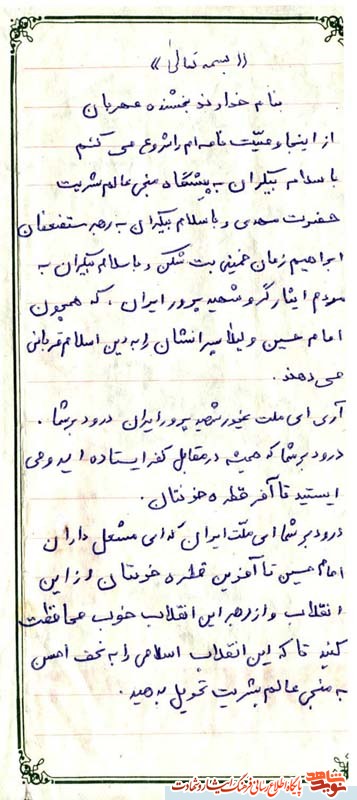 ((بسمه تعالی))
بنام خداوند بخشنده مهربان
از اینجا وصیّت نامه ام را شروع می کنم
با سلام بیکران به پیشگاه منجی عالم بشریت
حضرت مهدی و با سلام بیکران به رهبر مستضعفان
ابراهیم زمان خمینی بت شکن و با سلام بیکران به
مردم ایثارگر و شهید پرور ایران ، که همچون
امام حسین و لیلا پسرانشان را به دین اسلام قربانی
می دهند .
آری ای ملت غیور شهید پرور ایران درود بر شما .
درود بر شما که همیشه در مقابل کفر ایستاده اید و می
ایستید تا آخر قطره خونتان .
درود بر شما ای ملّت ایران که ای مشعل داران
امام حسین تا آخرین قطره خونتان از این
انقلاب و از رهبر این انقلاب خوب محافظت
کنید تا که این انقلاب اسلامی را به نحو احسن
به منجی عالم بشریت تحویل بدهید .
نوید شاهد
پایگاه اطلاع رسانی فرهنگ ایثار و شهادت